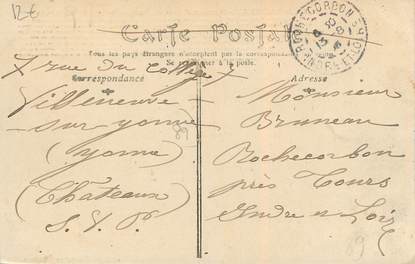 12€
Carte Postale
Tous les pays étrangers n'acceptent pas la correspondance
à la poste.
Correspondance
Adresse
ROCHECORBON
INDRE-ET-LOIRE
7 rue du Collège 7
Villeneuve
sur-yonne
(Yonne)
(Châteaux)
S.V.P.
89
Monsieur
Bruneau
Rochecorbon
près Tours
Indre et Loire
89